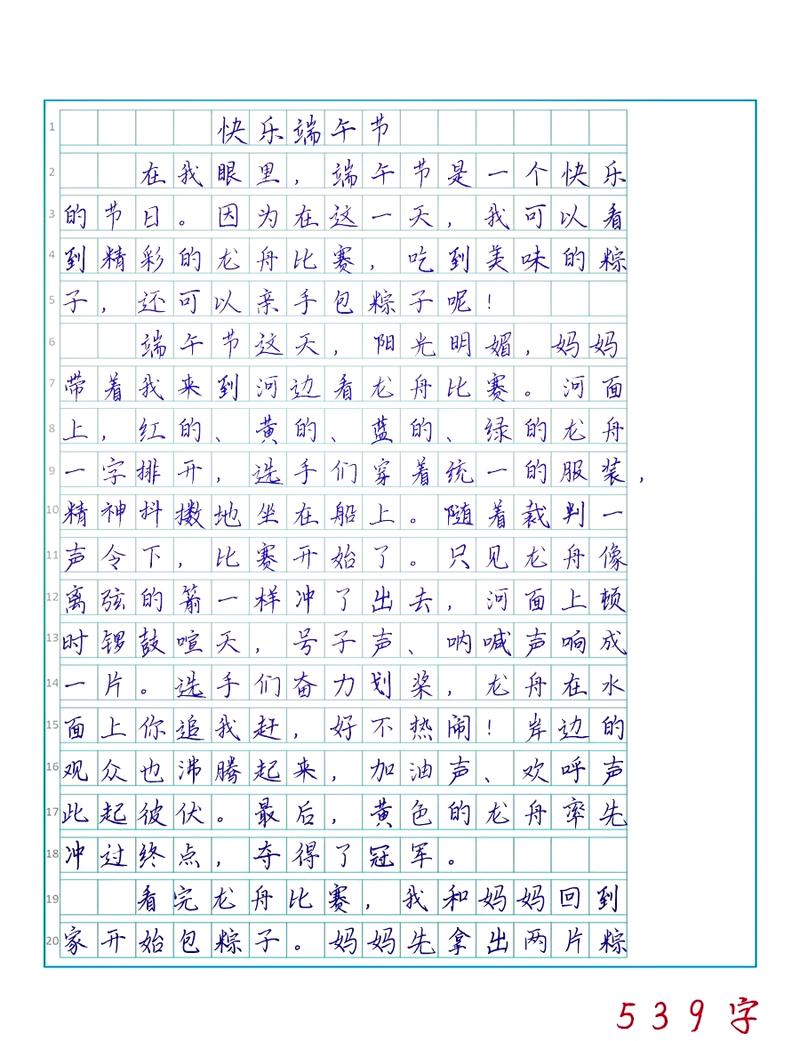 1 快乐端午节
2 在我眼里，端午节是一个快乐
3 的节日。因为在这一天，我可以看
4 到精彩的龙舟比赛，吃到美味的粽
5 子，还可以亲手包粽子呢！
6 端午节这天，阳光明媚，妈妈
7 带着我来到河边看龙舟比赛。河面
8 上，红的、黄的、蓝的、绿的龙舟
9 一字排开，选手们穿着统一的服装，
10 精神抖擞地坐在船上。随着裁判一
11 声令下，比赛开始了。只见龙舟像
12 离弦的箭一样冲了出去，河面上顿
13 时锣鼓喧天，号子声、呐喊声响成
14 一片。选手们奋力划桨，龙舟在水
15 面上你追我赶，好不热闹！岸边的
16 观众也沸腾起来，加油声、欢呼声
17 此起彼伏。最后，黄色的龙舟率先
18 冲过终点，夺得了冠军。
19 看完龙舟比赛，我和妈妈回到
20 家开始包粽子。妈妈先拿出两片粽
539字